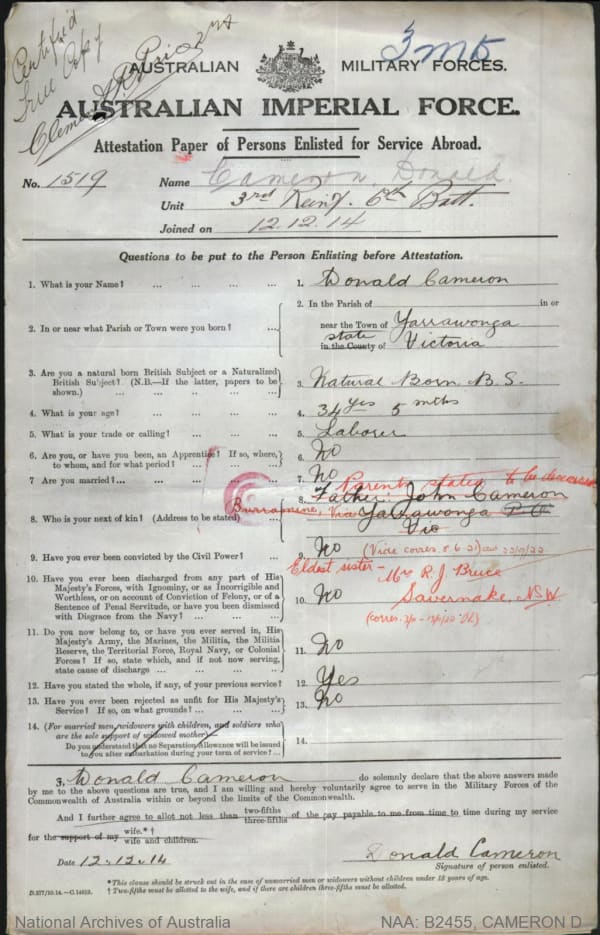 Certified
True Copy
3 M D
AUSTRALIAN MILITARY FORCES.
AUSTRALIAN IMPERIAL FORCE.
Attestation Paper of Persons Enlisted for Service Abroad.
No. 1519 Name Cameron, Donald.
Unit 3rd Reinf. 6th Batt.
Joined on 12.12.14
Questions to be put to the Person Enlisting before Attestation.
1. What is your Name? ... ... ... ... 1. Donald Cameron
2. In or near what Parish or Town were you born? ... 2. In the Parish of in or
near the Town of Yarrawonga
state
in the County of Victoria
3. Are you a natural born British Subject or a Naturalized
British Subject? (N.B.—If the latter, papers to be
shown.) ... ... ... ... ... 3. Natural Born B.S.
4. What is your age? ... ... ... ... 4. 34 yrs 5 mths
5. What is your trade or calling? ... ... ... 5. Laborer
6. Are you, or have you been, an Apprentice? If so, where,
to whom, and for what period? ... ... ... 6. No
7. Are you married? ... ... ... ... ... 7. No
Parents stated to be deceased
8. Who is your next of kin? (Address to be stated) ... 8. Father: John Cameron
Burramine, Via Yarrawonga P.O.
Vic
9. Have you ever been convicted by the Civil Power? ... 9. No
Eldest sister - Mrs R. J. Bruce
Savernake, N.S.W.
10. Have you ever been discharged from any part of His
Majesty's Forces, with Ignominy, or as Incorrigible and
Worthless, or on account of Conviction of Felony, or of a
Sentence of Penal Servitude, or have you been dismissed
with Disgrace from the Navy? ... ... ... 10. No
11. Do you now belong to, or have you ever served in, His
Majesty's Army, the Marines, the Militia, the Militia
Reserve, the Territorial Force, Royal Navy, or Colonial
Forces? If so, state which, and if not now serving,
state cause of discharge ... ... ... ... 11. No
12. Have you stated the whole, if any, of your previous service? 12. Yes
13. Have you ever been rejected as unfit for His Majesty's
Service? If so, on what grounds? ... ... ... 13. No
14. (For married men, widowers with children, and soldiers who
are the sole support of widowed mother)—
Do you understand that no Separation Allowance will be issued
to you after embarkation during your term of service? ... 14.
I, Donald Cameron do solemnly declare that the above answers made
by me to the above questions are true, and I am willing and hereby voluntarily agree to serve in the Military Forces of the
Commonwealth of Australia within or beyond the limits of the Commonwealth.
And I further agree to allot not less than two-fifths three-fifths of the pay payable to me from time to time during my service
for the support of my wife.*†
wife and children.
Date 12.12.14 Donald Cameron
Signature of person enlisted.
*This clause should be struck out in the case of unmarried men or widowers without children under 18 years of age.
† Two-fifths must be allotted to the wife, and if there are children three-fifths must be allotted.
National Archives of Australia NAA: B2455, CAMERON D